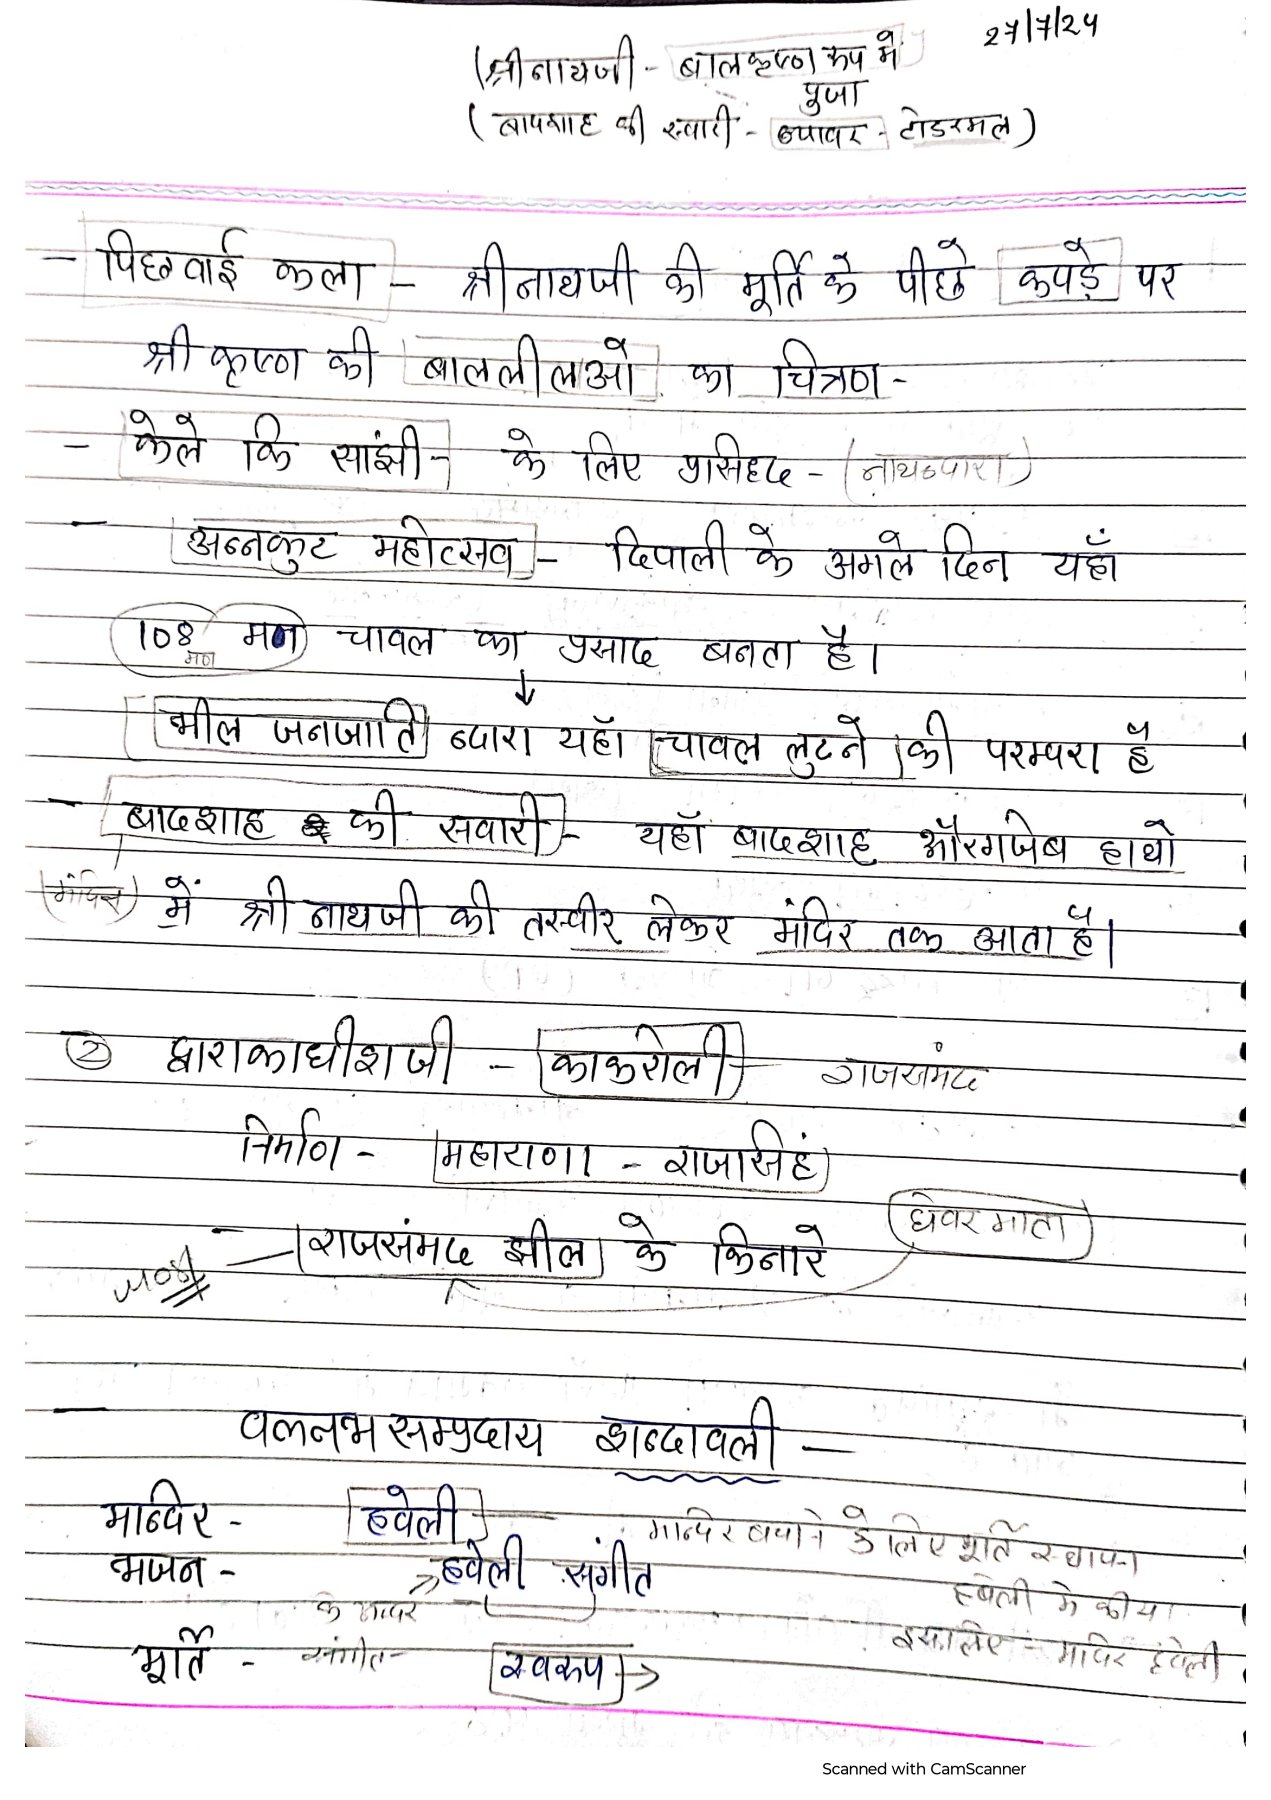 27/7/24
(श्रीनाथजी - बालकृष्ण रूप में
पुजा
(बादशाह की स्वारी - ब्यावर - टोडरमल)
- पिछवाई कला - श्रीनाथजी की मूर्ति के पीछे कपड़े पर
श्री कृष्ण की बाललीलओं का चित्रण -
- केले कि सांझी - के लिए प्रसिध्द - (नाथव्दारा)
- अन्नकुट महोत्सव - दिपाली के अगले दिन यहाँ
108 मण चावल का प्रसाद बनता है।
मण
↓
भील जनजाति व्दारा यहाँ चावल लुटने की परम्परा है
- बादशाह की सवारी - यहाँ बादशाह औरगजेब हाथो
में श्री नाथजी की तस्वीर लेकर मंदिर तक आता है।
② द्वाराकाधीशजी - काकरोली - राजसंमद
निर्माण - महाराणा - राजसिहं
घेवर माता
- राजसंमद झील के किनारे
- वलनभ सम्प्रदाय शब्दावली -
मान्दिर - हवेली - मान्दिर बचाने के लिए मूर्ति स्थापना
भजन - हवेली संगीत
हवेली मे कीया
के मंदिर
इसलिए - मंदिर हवेली
मूर्ति - संगीत - स्वरूप →
Scanned with CamScanner